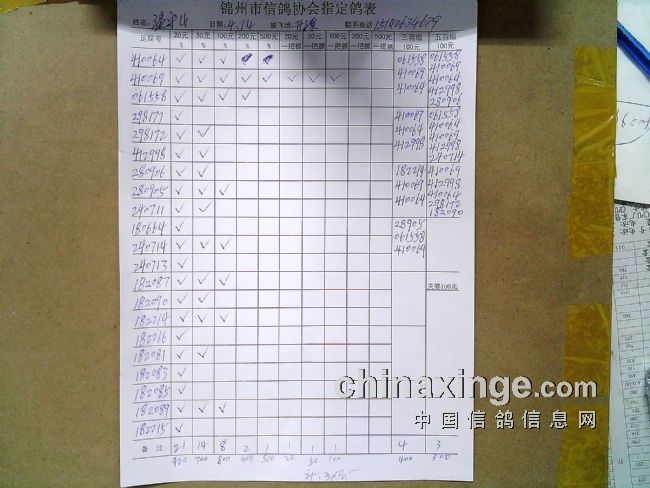 锦州市信鸽协会指定鸽表
姓名: 日期: 4.14 放飞地: 开原 联系电话 15140634679
足环号 20元 % 50元 % 100元 % 200元 % 500元 % 20元 一把抓 50元 一把抓 100元 一把抓 200元 一把抓 500元 一把抓 三羽组 100元 五羽组 100元
410064 ✓ ✓ ✓
410069 ✓ ✓ ✓ ✓ ✓ ✓ ✓ ✓
061558 ✓ ✓ ✓ ✓
298177 ✓
298172 ✓ ✓
412998 ✓
280906 ✓ ✓
280905 ✓ ✓ ✓
240711 ✓ ✓
180664 ✓
240714 ✓ ✓ ✓
240713 ✓
182087 ✓ ✓ ✓
182090 ✓ ✓
182214 ✓ ✓ ✓
182216 ✓
182081 ✓ ✓
182083 ✓
182085 ✓
182089 ✓ ✓ ✓
182215 ✓
备注 21 14 8 2 1 1 1 1 4 3
420 700 800 400 500 20 50 100 400 300
061558
410069
410064
410069
410064
412998
182214
410069
410064
28905
061558
410069
061558
410069
410064
412998
280906
061558
410064
410069
412998
240714
410069
412998
410064
298172
182090
大赛100元
chinaxinge.com
中国信鸽信息网